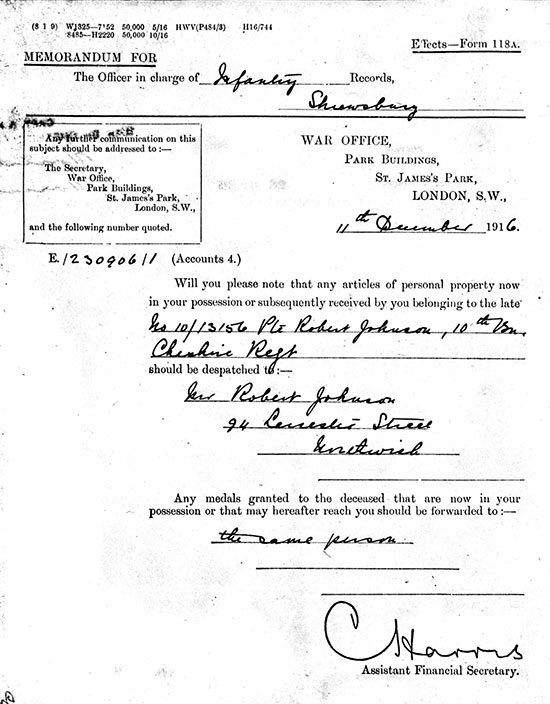 (8 1 9) W1325—7*52 50,000 5/16 HWV(P484/3) H16/744
8485—H2220 50,000 10/16
Effects—Form 118A.
MEMORANDUM FOR
The Officer in charge of Infantry Records,
Shrewsbury
Any further communication on this
subject should be addressed to :—
The Secretary,
War Office,
Park Buildings,
St. James's Park,
London, S.W.,
and the following number quoted.
WAR OFFICE,
PARK BUILDINGS,
ST. JAMES'S PARK,
LONDON, S.W.,
11th December 1916.
E./230906/1 (Accounts 4.)
Will you please note that any articles of personal property now
in your possession or subsequently received by you belonging to the late
No 10/13156 Pte Robert Johnson, 10th Bn.
Cheshire Regt
should be despatched to :—
Mr Robert Johnson
94 Leicester Street
Northwich
Any medals granted to the deceased that are now in your
possession or that may hereafter reach you should be forwarded to :—
the same person
C Harris
Assistant Financial Secretary.